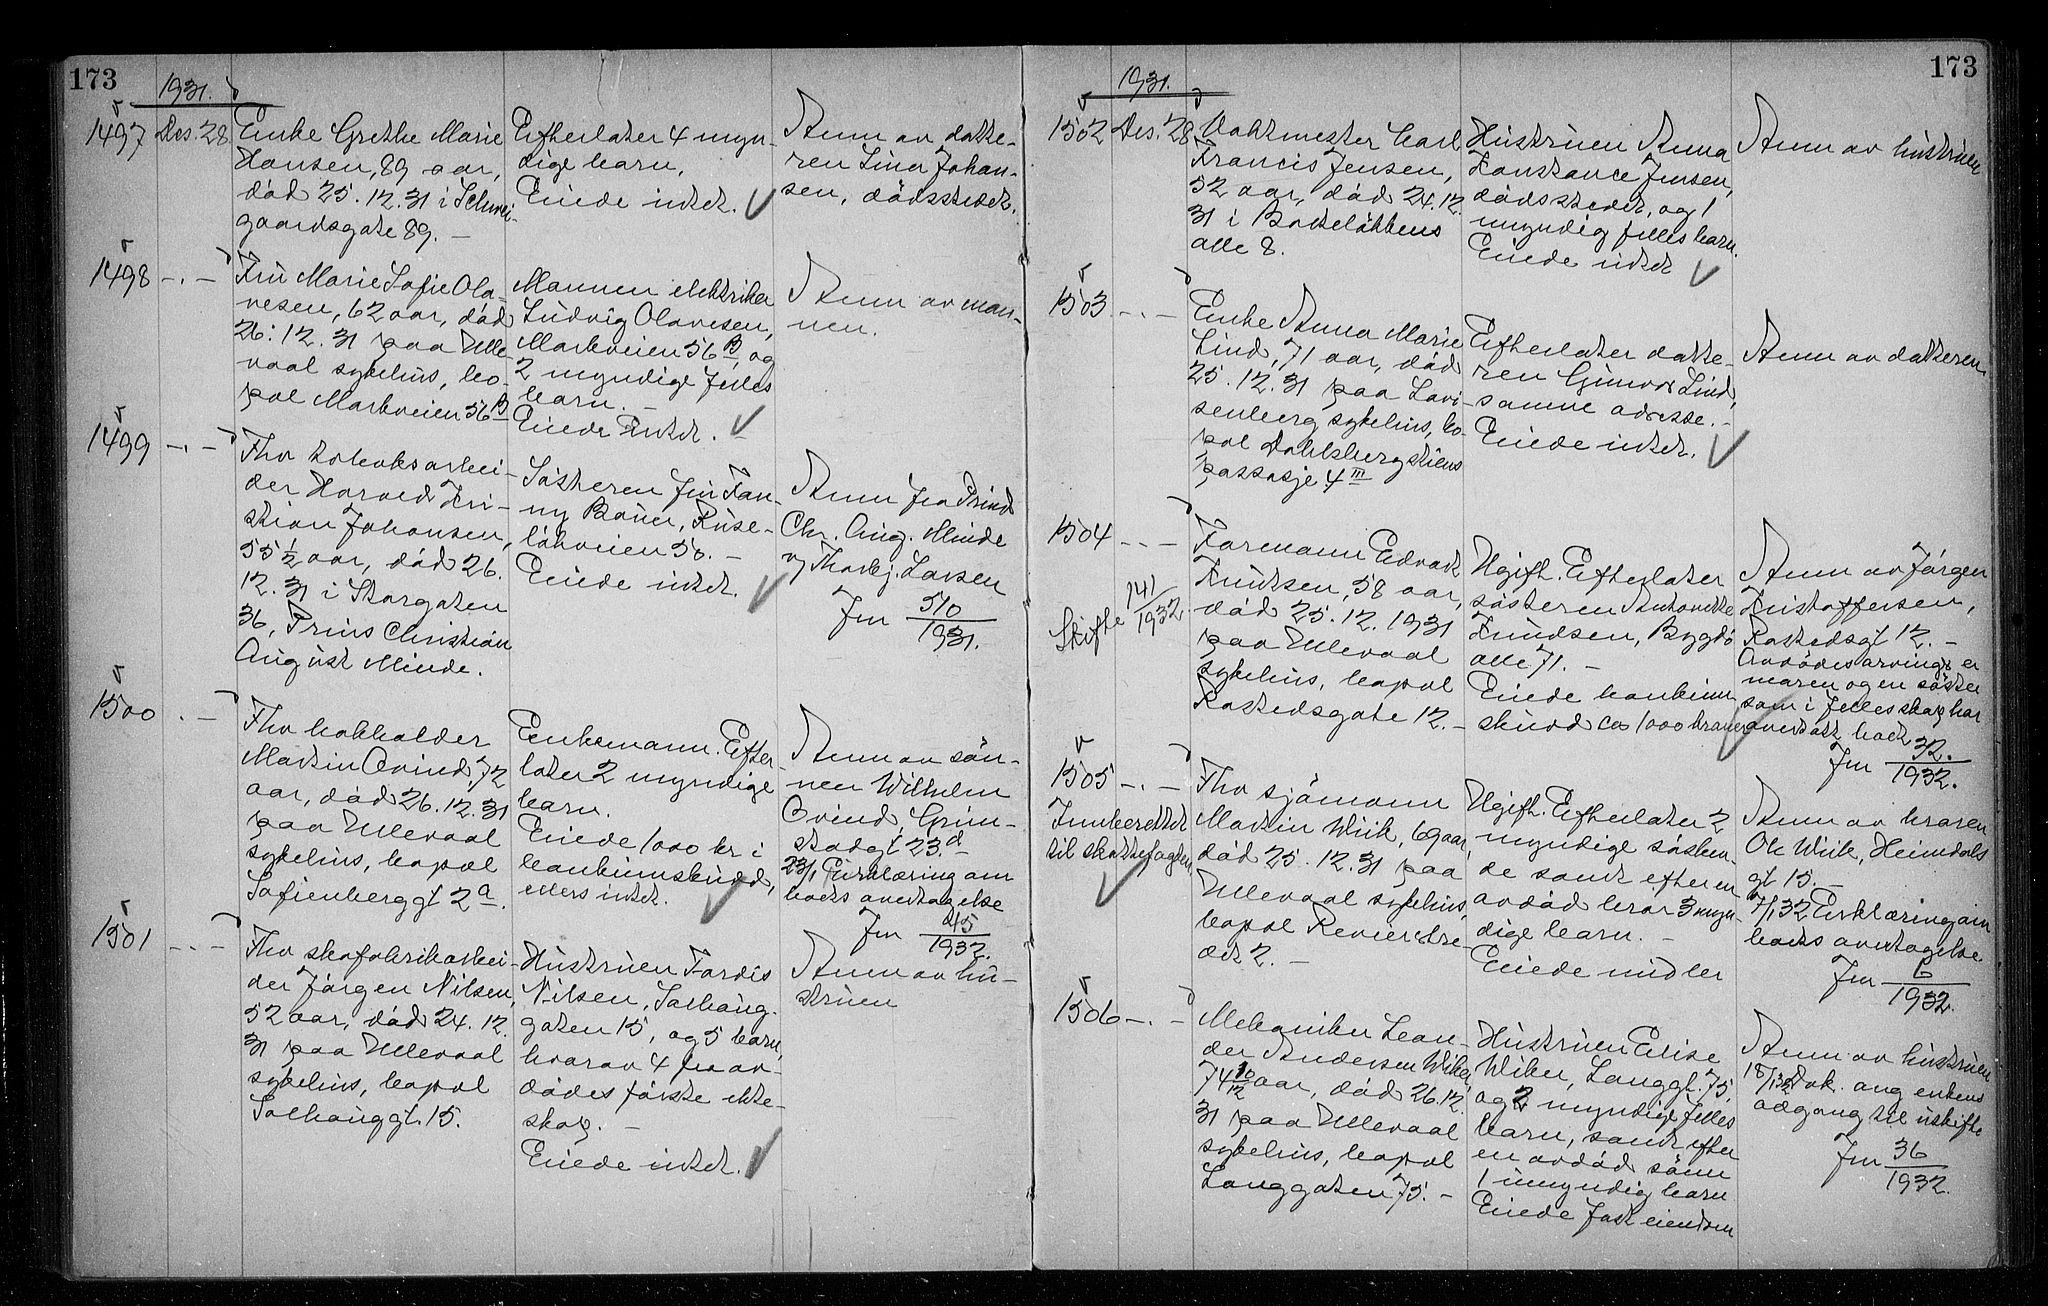 173
1931.
1497 Des. 28.
Enke Grethe Marie
Hansen, 89 aar,
död 25.12.31 i Schwei-
gaardsgate 89. –
Efterlater 4 myn-
dige barn.
Eiede intet.
Anm av datte-
ren Lina Johan-
sen, dödsstedet.
1498 -.-
Fru Marie Sofie Ola-
vesen, 62 aar, död
26.12.31 paa Ulle-
vaal sykehus, bo-
pæl Markveien 56 B
Mannen elektriker
Ludvig Olavesen,
Markveien 56 B og
2 myndige felles
barn. –
Eiede Intet. –
Anm av man-
nen.
1499 -.-
Fhv tobaksarbei-
der Harald Kri-
stian Johansen,
55 1/2 aar, död 26.
12.31 i Storgaten
36, Prins Christian
August Minde.
Sösteren fru Fan-
ny Bauer, Ruse-
lökveien 50. –
Eiede intet.
Anm fra Prind
Chr. Aug. Minde
v/ Thorbj. Larsen
Jnr 510
1931.
1500 . –
Fhv bokholder
Martin Qvind, 72
aar, död 26.12.31
paa Ullevaal
sykehus, bopæl
Sofienberggt 2 a.
Enkemann. Efter-
later 2 myndige
barn.
Eiede 1000 kr i
bankinnskudd,
ellers intet.
Anm av sön-
nen Wilhelm
Qvind, Grim-
stadgt 23 d
23/1 Erklæring om
boets overtagelse
Jnr 25
1932.
1501 -.-
Fhv skofabrikarbei-
der Jörgen Nilsen,
52 aar, död 24.12.
31 paa Ullevaal
sykehus, bopæl
Solhauggt. 15.
Hustruen Tordis
Nilsen, Solhaug-
gaten 15, og 5 barn,
hvorav 4 fra av-
dödes förste ekte-
skap. –
Eiede intet.
Anm av hu-
struen
173
1931.
1502 Des. 28
Vaktmester Carl
Francis Jensen,
52 aar, död 24.12.
31 i Bolteløkkens
alle 8.
Hustruen Anna
Konstance Jensen,
dödsstedet, og 1
myndig felles barn.
Eiede intet
Anm av hustruen
1503 -.-
Enke Anna Marie
Lind, 71 aar, död
25.12.31 paa Lovi-
senberg sykehus, bo-
pæl Dahlsbergstiens
passasje 4 III
Efterlater datte-
ren Gunvor Lind,
samme adresse. –
Eiede intet.
Anm av datteren
1504 -.-
Skifte 141/1932
Formann Edvart
Knudsen, 58 aar,
död 25.12.1931
paa Ullevaal
sykehus, bopæl
Rostedsgate 12. –
Ugift. Efterlater
sösteren Antonette
Knudsen, Bygdö
alle 71. –
Eiede bankinn-
skudd ca 1000 kroner
Anm av Jörgen
Kristoffersen,
Rostedsgt 12. –
Avdödes arvinger er
moren og en söster
som i fellesskap har
overtatt boet
Jnr 32.
1932.
1505 -.-
Innberettet
til skattefogden
Fhv sjömann
Martin Wiik, 69 aar,
död 25.12.31 paa
Ullevaal sykehus,
bopæl Revierstre-
det 2. –
Ugift. Efterlater 2
myndige sösken-
de samt efter en
avdöd bror 3 myn-
dige barn. –
Eiede midler
Anm av broren
Ole Wiik, Heimdals
gt 15. –
7/1 32 Erklæring om
boets overtagelse
Jnr 6
1932.
1506 -.-
Mekaniker Lean-
der Andersen Wiker
74 10/12 aar, död 26.12.
31 paa Ullevaal
sykehus, bopæl
Langgaten 75. –
Hustruen Elise
Wiker, Langgt. 75,
og 2 myndige felles
barn, samt efter
en avdöd sönn
1 umyndig barn
Eiede fast eiendom
Anm av hustruen
18/1 32 Dok. ang enkens
adgang til uskifte
Jnr 36
1932.